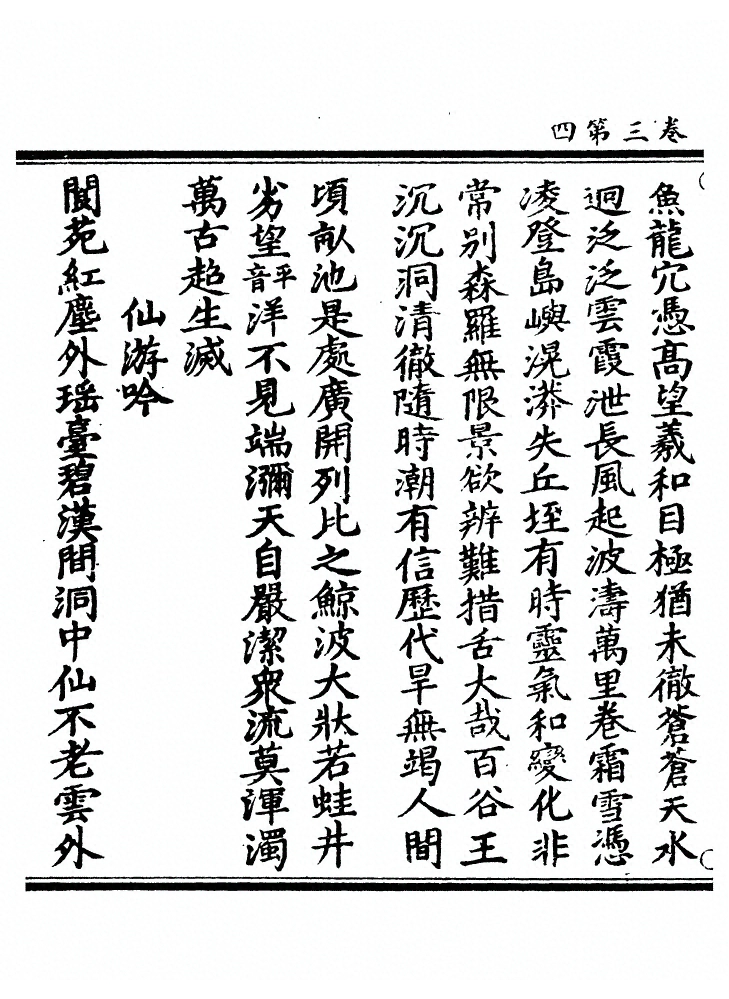 卷三第四
魚龍穴憑高望羲和目極猶未徹蒼蒼天水
迥泛泛雲霞泄長風起波濤萬里卷霜雪憑
凌登島嶼滉漭失丘垤有時靈氣和變化非
常別森羅無限景欲辨難措舌大哉百谷王
沉沉洞清徹隨時潮有信歷代旱無竭人間
頃畝池是處廣開列比之鯨波大狀若蛙井
劣望平音洋不見端瀰天自嚴潔衆流莫渾濁
萬古超生滅
仙游吟
閬苑紅塵外瑶臺碧漢間洞中仙不老雲外